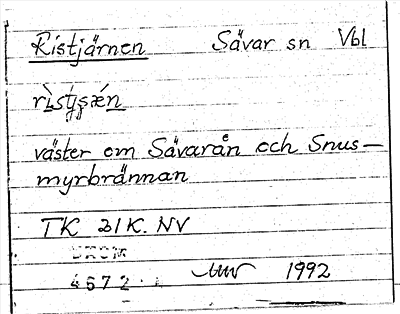 Ristjärnen Sävar sn Vbl
rìstjşǽn
väster om Sävarån och Snus-
myrbrännan
TK 21K. NV
4572
1992